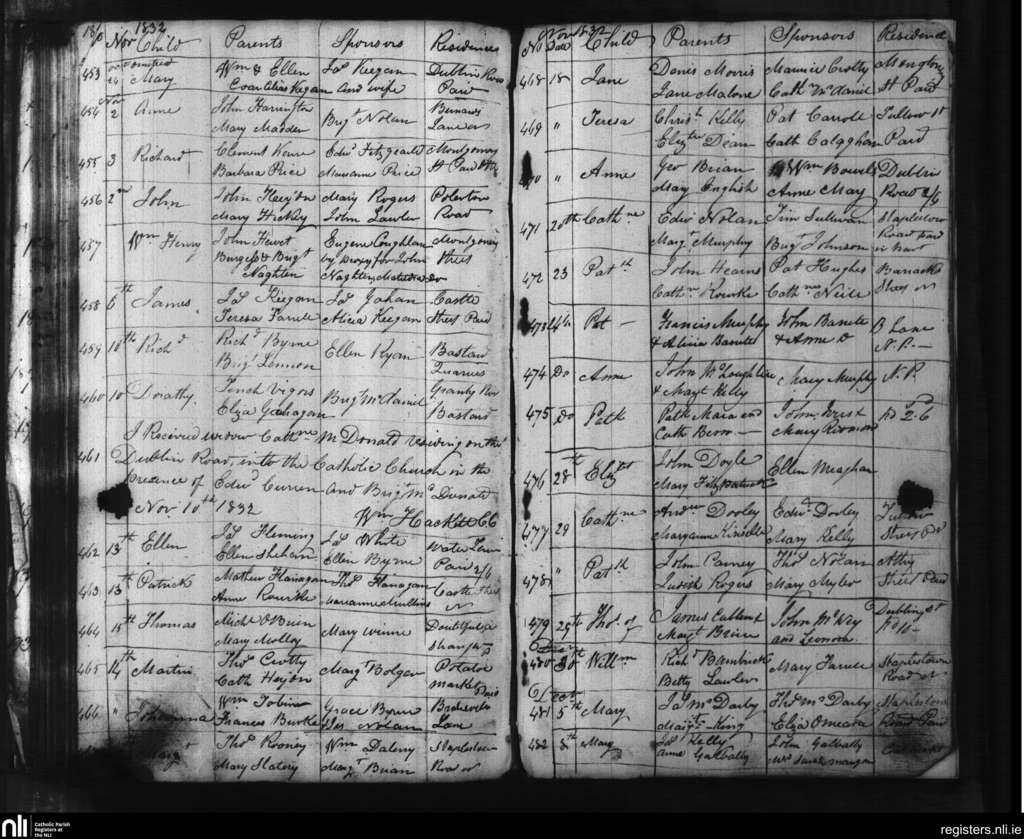 1832
Nov Child Parents Sponsors Residence
453 omitted Mary Wm & Ellen Jas Keegan Dublin Road
Coan alias Kegan and wife Paid
454 Nov 2 Anne John Harrington Brigt Nolan Bernards
Mary Madden Lane
455 3 Richard Clement Edwd Fitzgerald Montgomery
Barbara Price Maryanne Price St Paid
456 2nd John John Heydon Mary Rogers Polerton
Mary Hickey John Lawler Road
457 Wm Henry John Hewet Eugene Coughlan Montgomery
Burgess & Brigt by proxy for John Street
Naghten Naghten
458 6th James Jas Keegan Jas Gahan Castle
Teresa Farrell Alicia Keegan Street Paid
459 10th Richd Richd Byrne Ellen Ryan Bastan
Brigt Lennon Quarries
460 10 Dorathy Tench Vigors Brigt McDaniel Granby Row
Eliza Gahagan Bastans
I Received widow Cathne McDonald residing on the
461 Dublin Road, into the Catholic Church in the
presence of Edwd Curren and Brigt McDonald
Nov 10th 1832 Wm Hackett CC
462 13th Ellen Jas Fleming Jas White Water Lane
Ellen Shehan Ellen Byrne Paid 2/6
463 13th Patrick Mathew Flanagan Thos Flanagan Castle Street
Anne Rourke Marianne Mullins
464 15th Thomas Michl O'Brien Mary Winne
Mary Molloy
465 14th Martin Thos Crotty Margt Bolger Potatoe
Cath Heydon market Paid
466 " Johanna Wm Tobin Grace Byrne
Frances Burke Jas Nolan Lane
Thos Rooney Wm Daleny Staplestown
Mary Slatery Margt Brian Road
Nov 1832
No. Date Child Parents Sponsors Residence
468 18 Jane Denis Morris Maurice Crotty Montgomery
Jane Malone Cath McDaniel St Paid
469 " Teresa Christr Kelly Pat Carroll Tullow St
Elizth Dean Cath Calaghan Paid
470 " Anne Geo Brian Wm Bowels Dublin
Mary English Anne May Road 2/6
471 20th Cathne Edwd Nolan Tim Sullivan Staplestown
Margt Murphy Brigt Johnson Road paid in part
472 23 Patk John Hearns Pat Hughes Barracks
Cathn Rourke Cathne Neill Street
473 24th Pat Francis Murphy John Barrett B Lane
& Alicia Barrett & Anne Do N.P.
474 Do Anne John McLoughlin Mary Murphy N.P.
& Margt Kelly
475 Do Patk Patk Mara and John West Pd 2.6
Cath Mary Redmond
476 28th Elizth John Doyle Ellen Meaghan
Mary Fitzpatrick
477 29 Cathne Andrew Dooley Edwd Dooley Tullow
Maryanne Kinsella Mary Kelly Street Pd
478 " Patk John Carney Thos Nolan Athy
Judith Rogers Mary Myler Street Paid
479 25th Thos of James Cullen & John McKey Dublin St
Margt Brien and Lennon Pd 10-
480 30th Willm Richd Bambrick Mary Farrell Staplestown
Betty Lawler Road
481 5th Mary Jas McDarby Thos McDarby Staplestown
Margt King Eliza Omeara Road Paid
482 8th Mary Jas Kelly John Galbally
Anne Galbally Mrs Sarah Mangan
nli Catholic Parish Registers at the NLI
registers.nli.ie